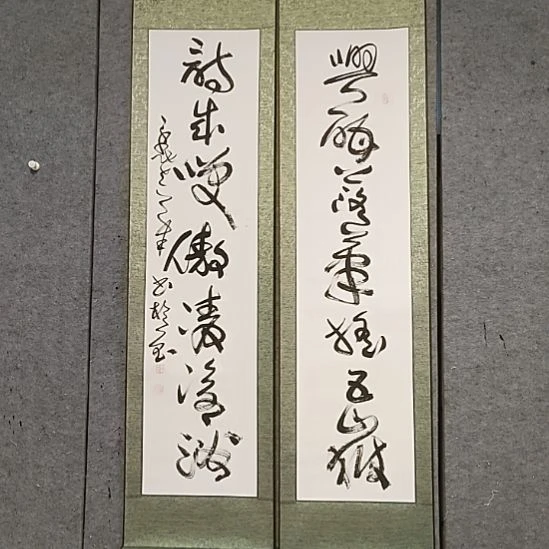 興酣落筆搖五嶽
詩成笑傲凌滄洲